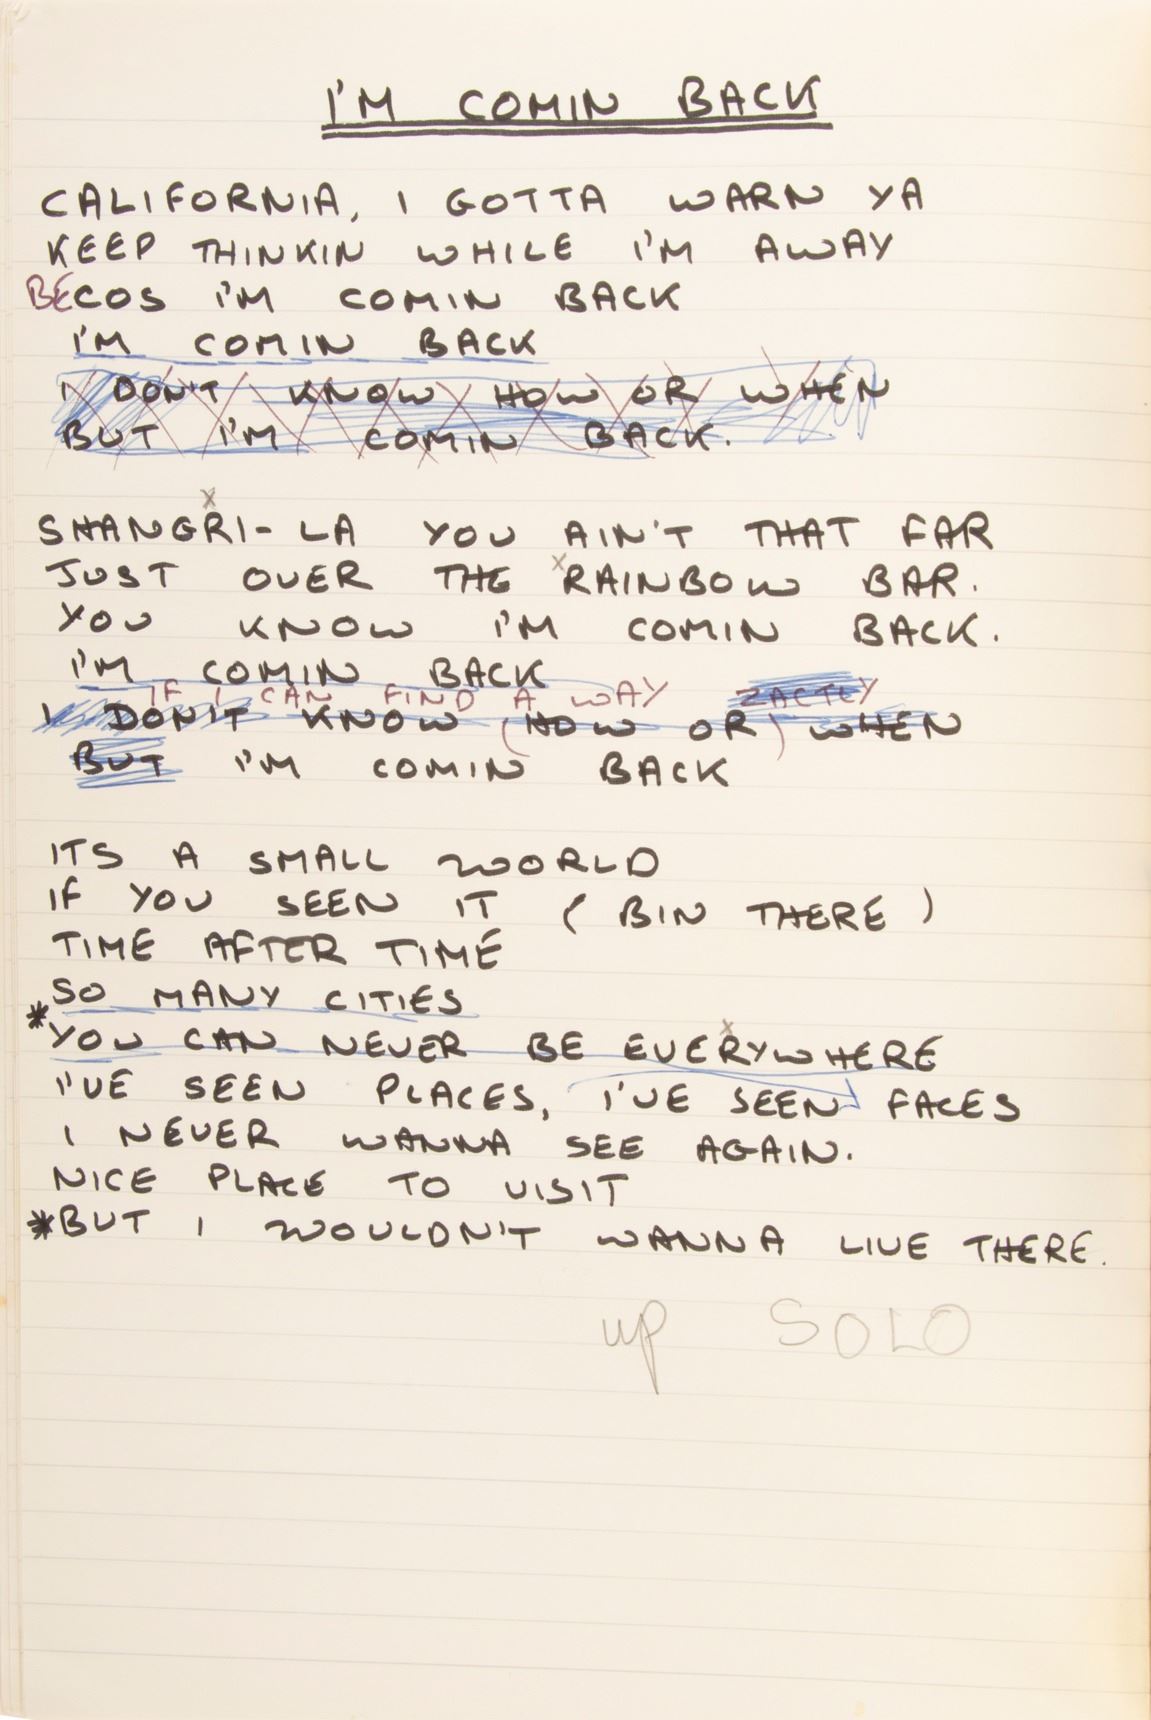 I'M COMIN BACK
CALIFORNIA, I GOTTA WARN YA
KEEP THINKIN WHILE I'M AWAY
BECOS I'M COMIN BACK
I'M COMIN BACK
I DON'T KNOW HOW OR WHEN
BUT I'M COMIN BACK.
x
SHANGRI-LA YOU AIN'T THAT FAR
x
JUST OVER THE RAINBOW BAR.
YOU KNOW I'M COMIN BACK.
I'M COMIN BACK
IF I CAN FIND A WAY ZACTLY
I DON'T KNOW (HOW OR) WHEN
BUT I'M COMIN BACK
ITS A SMALL WORLD
IF YOU SEEN IT (BIN THERE)
TIME AFTER TIME
SO MANY CITIES
x
*YOU CAN NEVER BE EVERYWHERE
I'VE SEEN PLACES, I'VE SEEN FACES
I NEVER WANNA SEE AGAIN.
NICE PLACE TO VISIT
*BUT I WOULDN'T WANNA LIVE THERE.
up SOLO